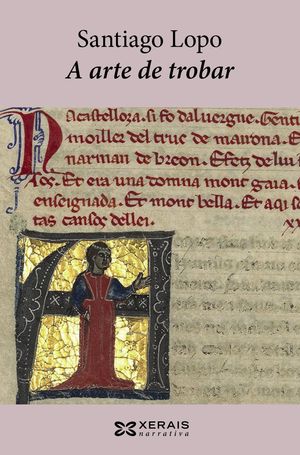 Santiago Lopo
A arte de trobar
Na castelloza. si fo dalvergne. Gentil
moiller del truc de mairona. E
narman de breon. E fetz de lui
sos. Et era una domna mout gaia. E
enseignada. Et mout bella. Et aqui s
tas cansos dellei.
XERAIS
narrativa